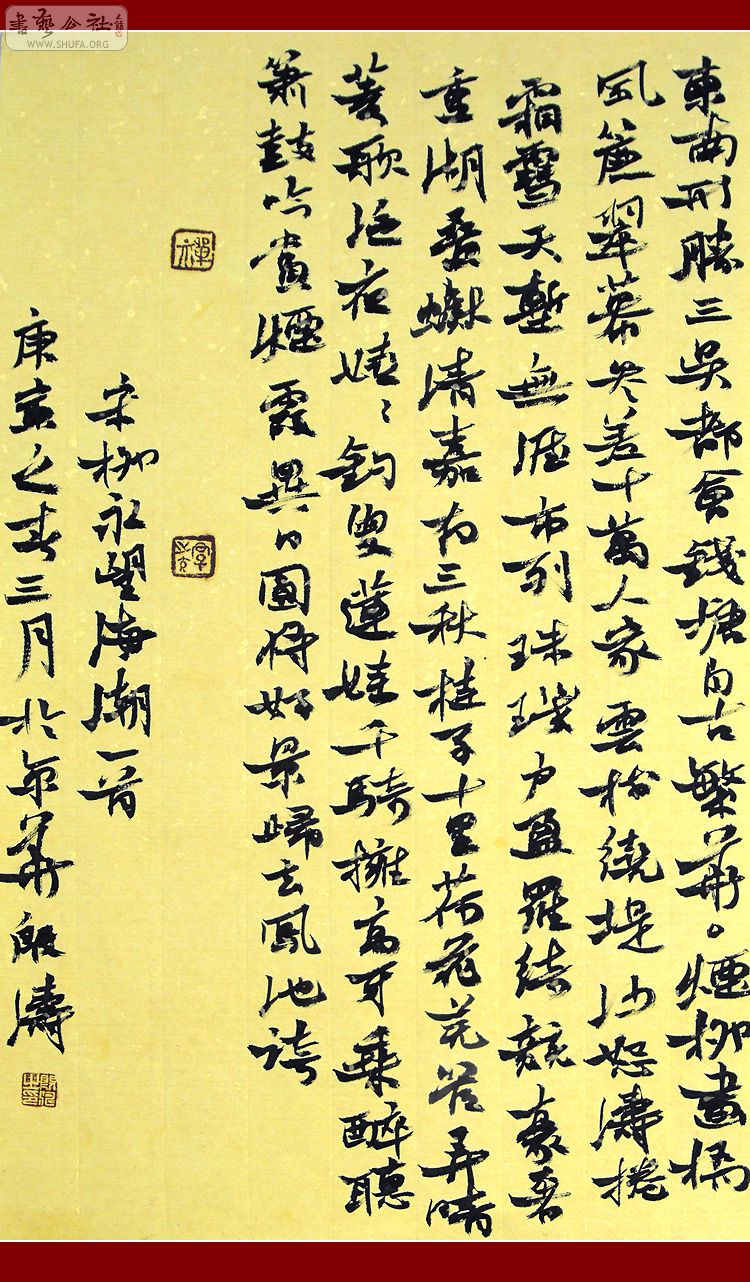 書藝公社
WWW.SHUFA.ORG
東南形勝三吳都會錢塘自古繁華。煙柳畫橋
風簾翠幕參差十萬人家雲樹繞堤沙怒濤捲
霜雪天塹無涯市列珠璣户盈羅綺競豪奢
重湖疊巘清嘉有三秋桂子十里荷花羌管弄晴
菱歌泛夜嬉〻釣叟蓮娃千騎擁高牙乘醉聽
簫鼓吟賞煙霞異日圖將好景歸去鳳池誇
宋柳永望海潮一首
庚寅之春三月於京華殷濤